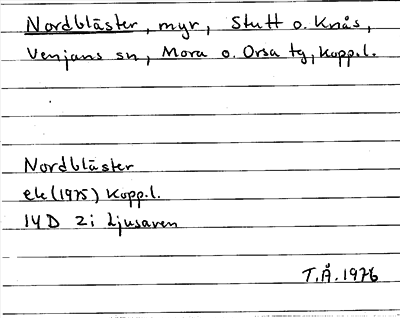 Nordbläster, myr, Stutt o. Knås,
Venjans sn, Mora o. Orsa tg, Kopp.l.
Nordbläster
ek (1975) Kopp.l.
14D 2i Ljusaven
T.Å. 1976